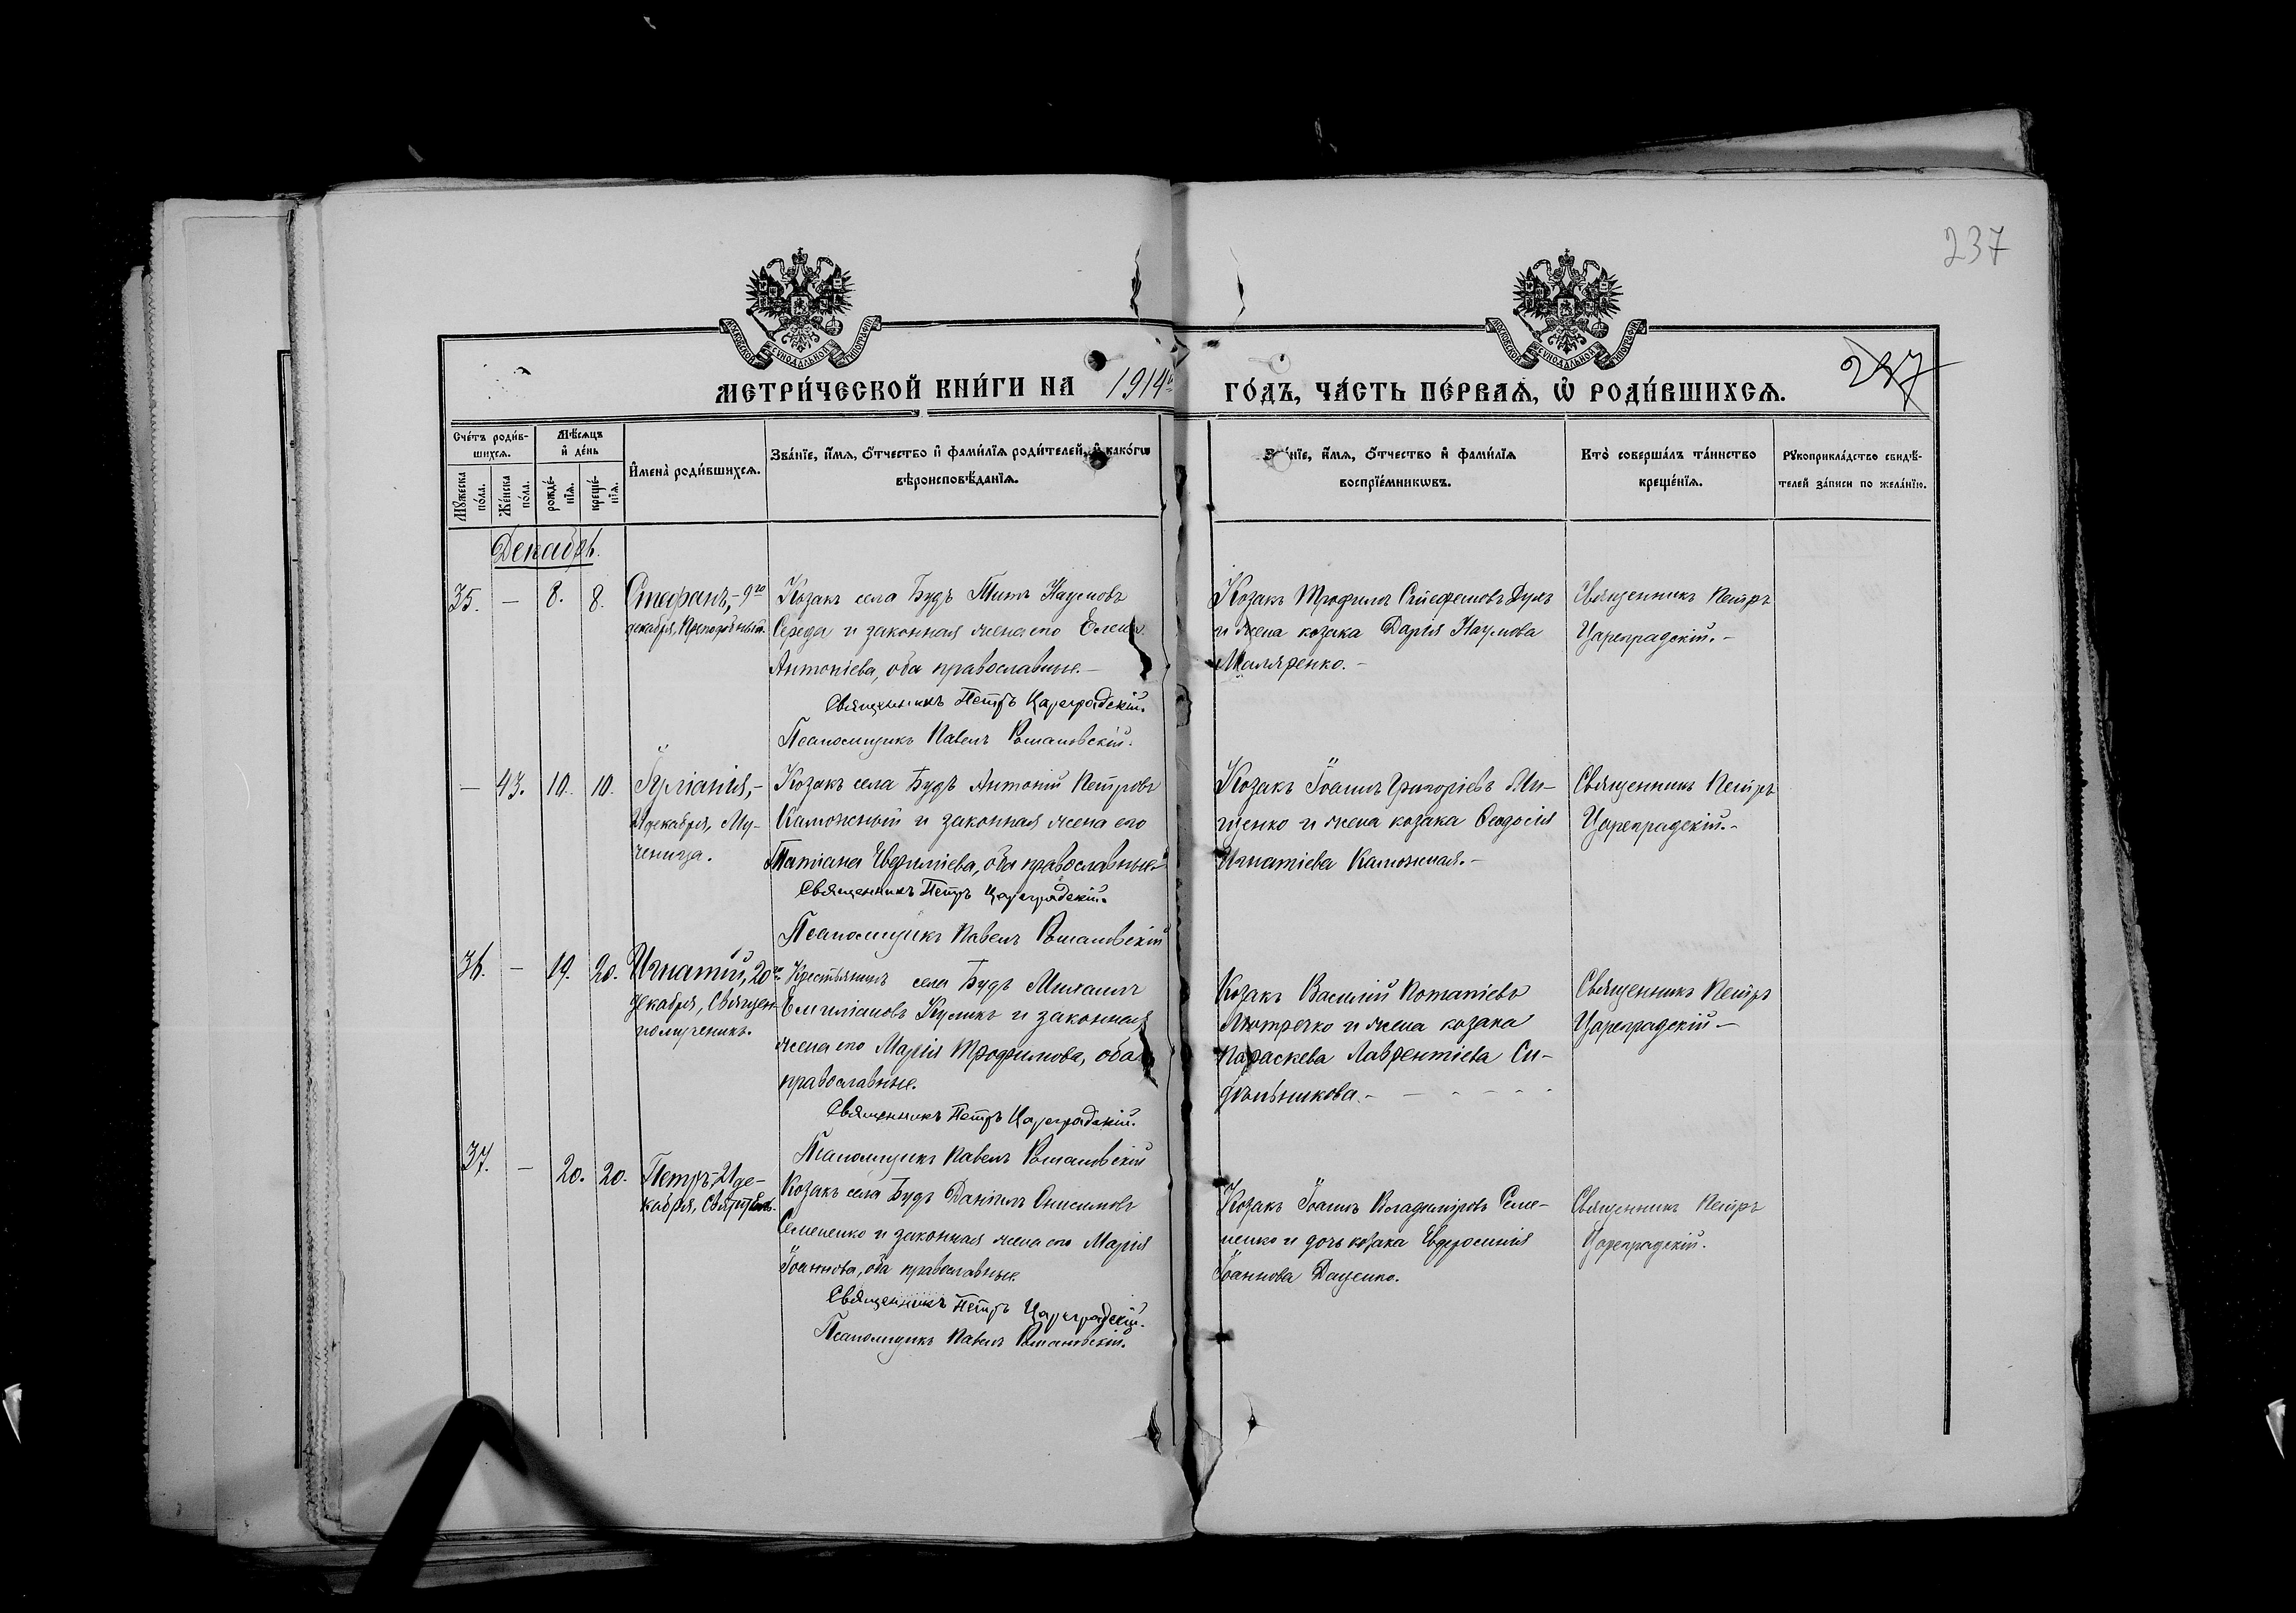 237
МОСКОВСКОЙ СѴНОДАЛЬНОЙ ТИПОГРАФІИ
МОСКОВСКОЙ СѴНОДАЛЬНОЙ ТИПОГРАФІИ
МЕТРИ́ЧЕСКОЙ КНИ́ГИ НА 1914й
ГО́ДЪ, ЧА́СТЬ ПЕ́РВАѦ, Ѽ РОДИ́ВШИХСѦ.
Сче́тъ роди́в-
шихсѧ.
Мѣ́сѧцъ
и де́нь
Мꙋжеска
по́ла.
Же́нска
по́ла.
рожде́-
нїѧ.
креще́-
нїѧ.
Имена̀ роди́вшихсѧ.
Зва́нїе, и́мѧ, ѻ́тчество и фами́лїѧ роди́телей, и како́гѡ
вѣроисповѣ́данїѧ.
Зва́нїе, и́мѧ, ѻ́тчество и фами́лїѧ
воспрїе́мникѡвъ.
Кто̀ соверша́лъ та́инство
креще́нїѧ.
Рꙋкоприкла́дство свидѣ́-
телей за́писи по жела́нїю.
Декабрь.
35. — 8. 8.
Стефанъ,- 9го
декабря, Преподобный.
Козакъ села Будъ Титъ Наумовъ
Середа и законная жена его Елена
Антоніева, оба православные.—
Священникъ Петръ Цареградскій.
Псаломщикъ Павелъ Романовскій.
Козакъ Трофимъ Стефановъ
и жена козака Дарія Наумова
Маляренко.-
Священникъ Петръ
Цареградскій.-
— 43. 10. 10.
Іуліанія,-
21 декабря, Му-
ченица.
Козакъ села Будъ Антоній Петровъ
Калюжный и законная жена его
Татіана Евфиміева, оба православные.
Священникъ Петръ Цареградскій.
Псаломщикъ Павелъ Романовскій
Козакъ Іоаннъ Григоріевъ Ми-
щенко и жена козака Ѳеодосія
Игнатіева Калюжная.-
Священникъ Петръ
Цареградскій.-
36. — 19. 20.
Игнатій, 20го
декабря, Священ-
номученикъ.
Крестьянинъ села Будъ Михаилъ
Емиліановъ Куликъ и законная
жена его Марія Трофимова, оба
православные.
Священникъ Петръ Цареградскій.
Псаломщикъ Павелъ Романовскій
Козакъ Василій Потапіевъ
и жена козака
Параскева Лаврентіева Си-
дѣльникова.-
Священникъ Петръ
Цареградскій —
37. — 20. 20.
Петръ,- 21 де-
кабря, Святитель.
Козакъ села Будъ Даніилъ Онисимовъ
Семененко и законная жена его Марія
Іоаннова, оба православные.
Священникъ Петръ Цареградскій.
Псаломщикъ Павелъ Романовскій.
Козакъ Іоаннъ Владиміровъ Семе-
ненко и дочь козака Евфросинія
Іоаннова Даценко.
Священникъ Петръ
Цареградскій.